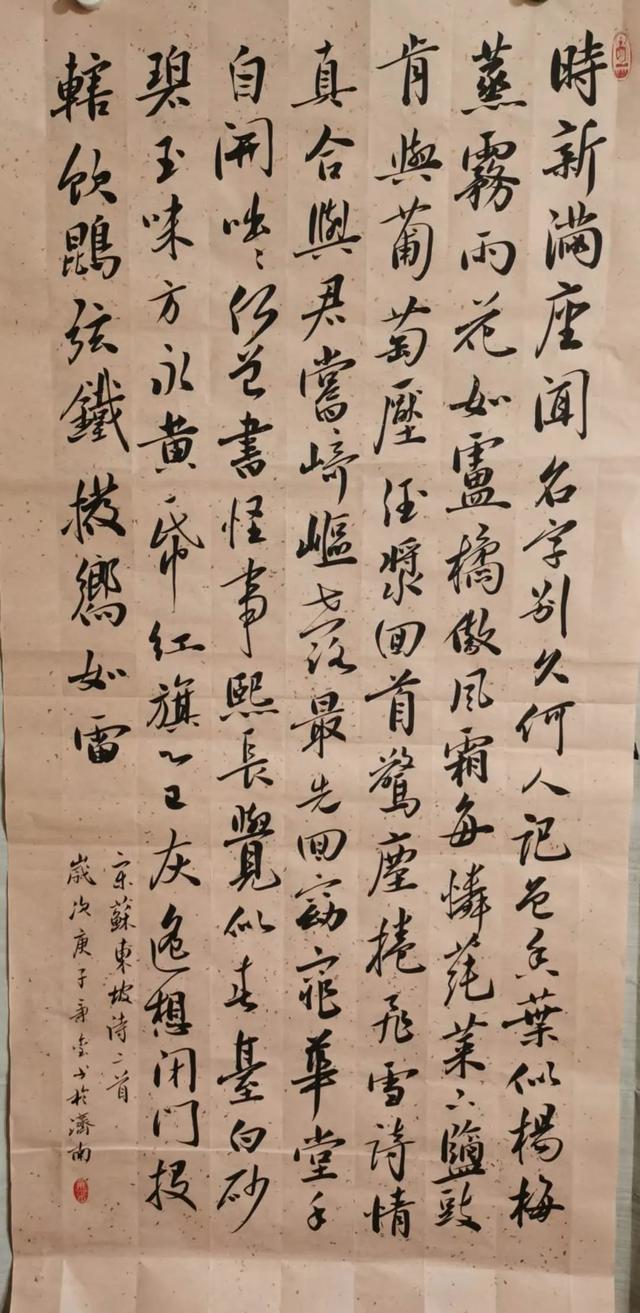 時新滿座聞名字別久何人記色香葉似楊梅
蒸霧雨花如盧橘傲風霜每憐蒓菜下鹽豉
肯與葡萄壓酒漿囬首驚塵捲飛雪詩情
真合與君嘗崎嶇世路最先囬窈窕華堂手
自開咄〻何曾書怪事熙長覺似春臺白砂
碧玉味方永黃帋紅旗心已灰遙想閉門投
轄飲鵾弦鐵撥響如雷
宋蘇東坡詩二首
歲次庚子書於濟南